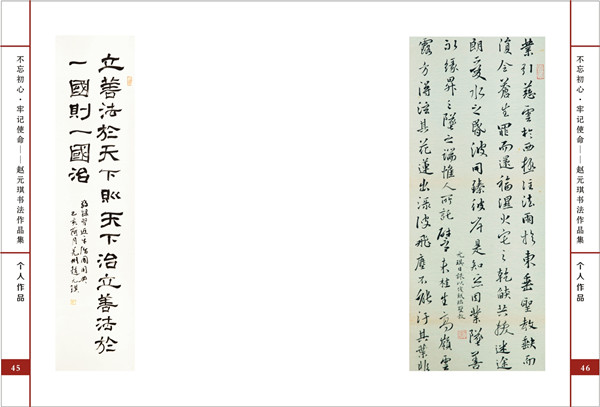 不忘初心·牢记使命——赵元琪书法作品集
个人作品
45
立善法於天下則天下治立善法於
一國則一國治
業引慈雲於西極注法雨於東垂聖教缺而
復全蒼生罪而還福濕火宅之乾燄共拔迷途
朗愛水之昏波同臻彼岸是知惡因業墜善
以緣昇昇墜之端惟人所託譬夫桂生高嶺雲
露方得泫其花蓮出淥波飛塵不能汙其葉非
不忘初心·牢记使命——赵元琪书法作品集
个人作品
46